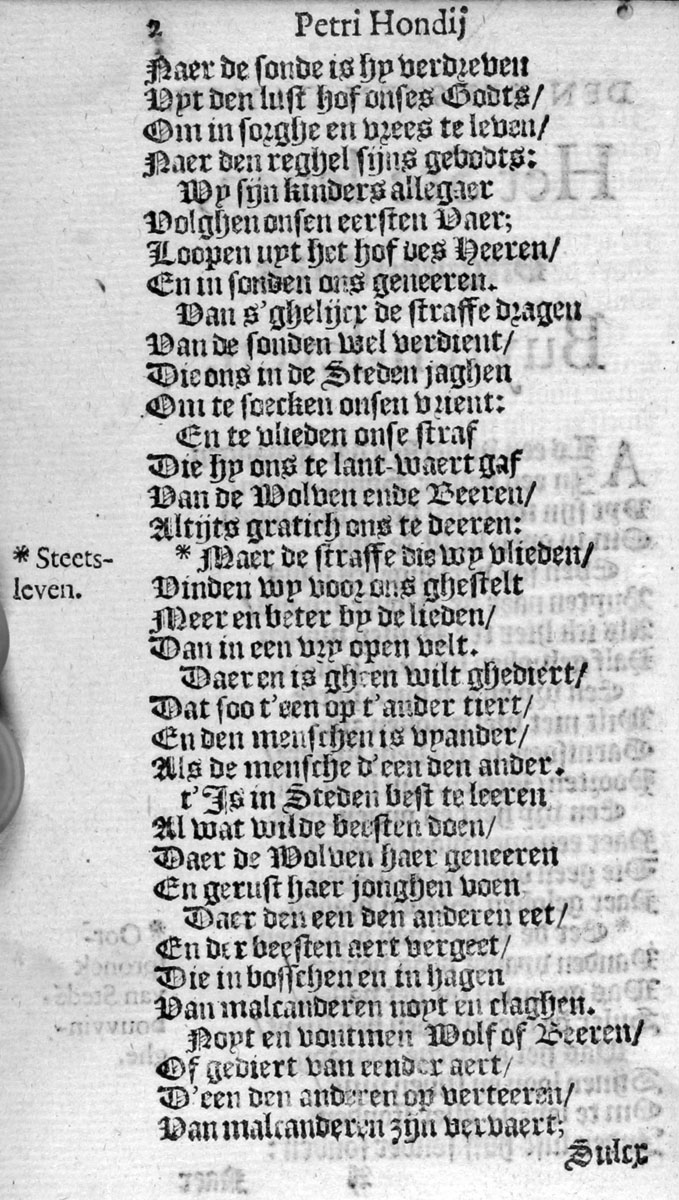 2 Petri Hondij
Naer de sonde is hy verdreven
Uyt den lust hof onses Godts/
Om in sorghe en vrees te leven/
Naer den reghel sijns gebodts:
Wy sijn kinders allegaer
Volghen onsen eersten Vaer;
Loopen uyt het hof des Heeren/
En in sonden ons geneeren.
Van s'ghelijcx de straffe dragen
Van de sonden wel verdient/
Die ons in de Steden jaghen
Om te soecken onsen vrient:
En te vlieden onse straf
Die hy ons te lant-waert gaf
Van de Wolven ende Beeren/
Altijts gratich ons te deeren:
* Steets-
leven.
* Maer de straffe die wy vlieden/
Vinden wy voor ons ghestelt
Meer en beter by de lieden/
Dan in een vry open velt.
Daer en is gheen wilt ghediert/
Dat soo t'een op t'ander tiert/
En den menschen is vyander/
Als de mensche d'een den ander.
t'Is in Steden best te leeren
Al wat wilde beesten doen/
Daer de Wolven haer geneeren
En gerust haer jonghen voen
Daer den een den anderen eet/
En der beesten aert vergeet/
Die in bosschen en in hagen
Van malcanderen noyt en claghen.
Noyt en vontmen Wolf of Beeren/
Of gediert van eender aert/
D'een den anderen op verteeren/
Van malcanderen zijn vervaert;
Sulcx